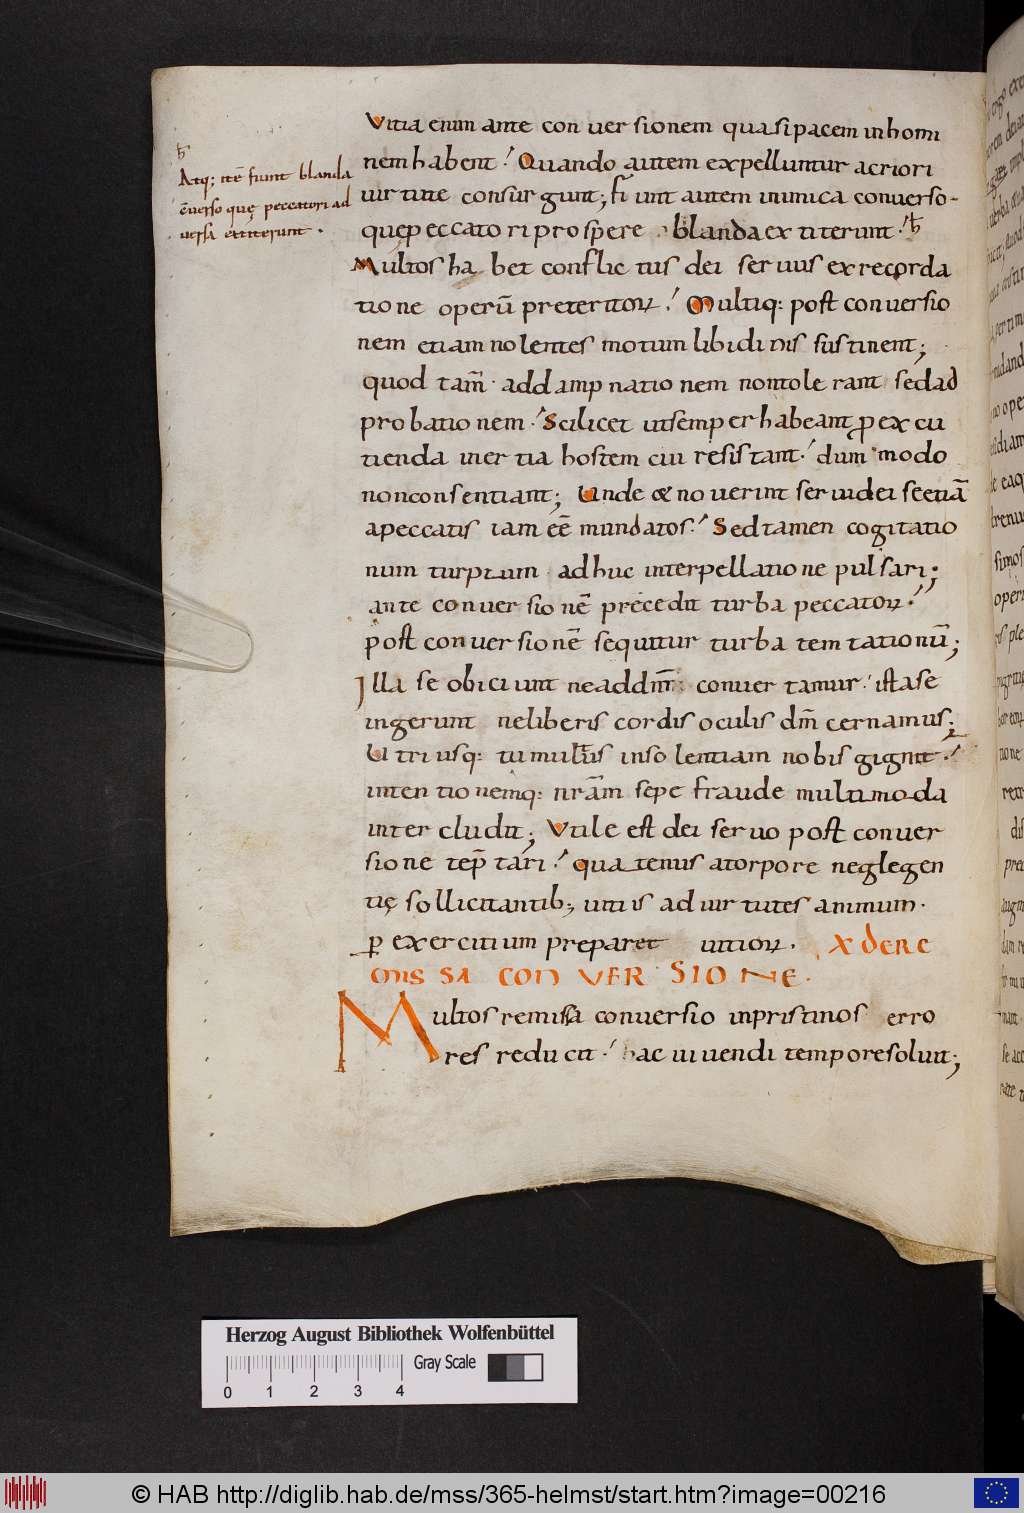 Atq; itē fiunt blanda
ꝯuerso quę peccatori ad
uersa extiterunt ·
Vitia enim ante conuersionem quasi pacem in homi
nem habent! Quando autem expelluntur acriori
uirtute consurgunt; fiunt autem inimica conuerso-
quę peccatori prospere blanda extiterunt!
Multos habet conflictus dei seruus ex recorda
tione operū preteritoꝝ! Multiq: post conuersio
nem etiam nolentes motum libidinis sustinent;
quod tam̄ · ad dampnationem non tolerant sed ad
probationem! Scilicet ut semper habeant p ex cu
tienda inertia hostem cui resistant! dum modo
non consentiant; Unde & nouerint serui dei se etiā
a peccatis iam eē mundatos! Sed tamen cogitatio
num turpium adhuc interpellatione pulsari;
ante conuersionē precedit turba peccatoꝝ!
post conuersionē sequitur turba temtationū;
Illa se obiciunt ne ad dm̄ conuertamur! ista se
ingerunt ne liberis cordis oculis dm̄ cernamus;
Utriusq: tumultus insolentiam nobis gignit!
intentionemq: nr̄am sepe fraude multimoda
intercludit; Vtile est dei seruo post conuer
sione tēptari! quatenus a torpore neglegen
tię sollicitantib; uitiis ad uirtutes animum ·
p exercitium preparet uitioꝝ. X DE RE
MISSA CONVERSIONE.
Multos remissa conuersio in pristinos erro
res reducit! hac uiuendi tempore soluit;
Herzog August Bibliothek Wolfenbüttel
Gray Scale
0 1 2 3 4
© HAB http://diglib.hab.de/mss/365-helmst/start.htm?image=00216